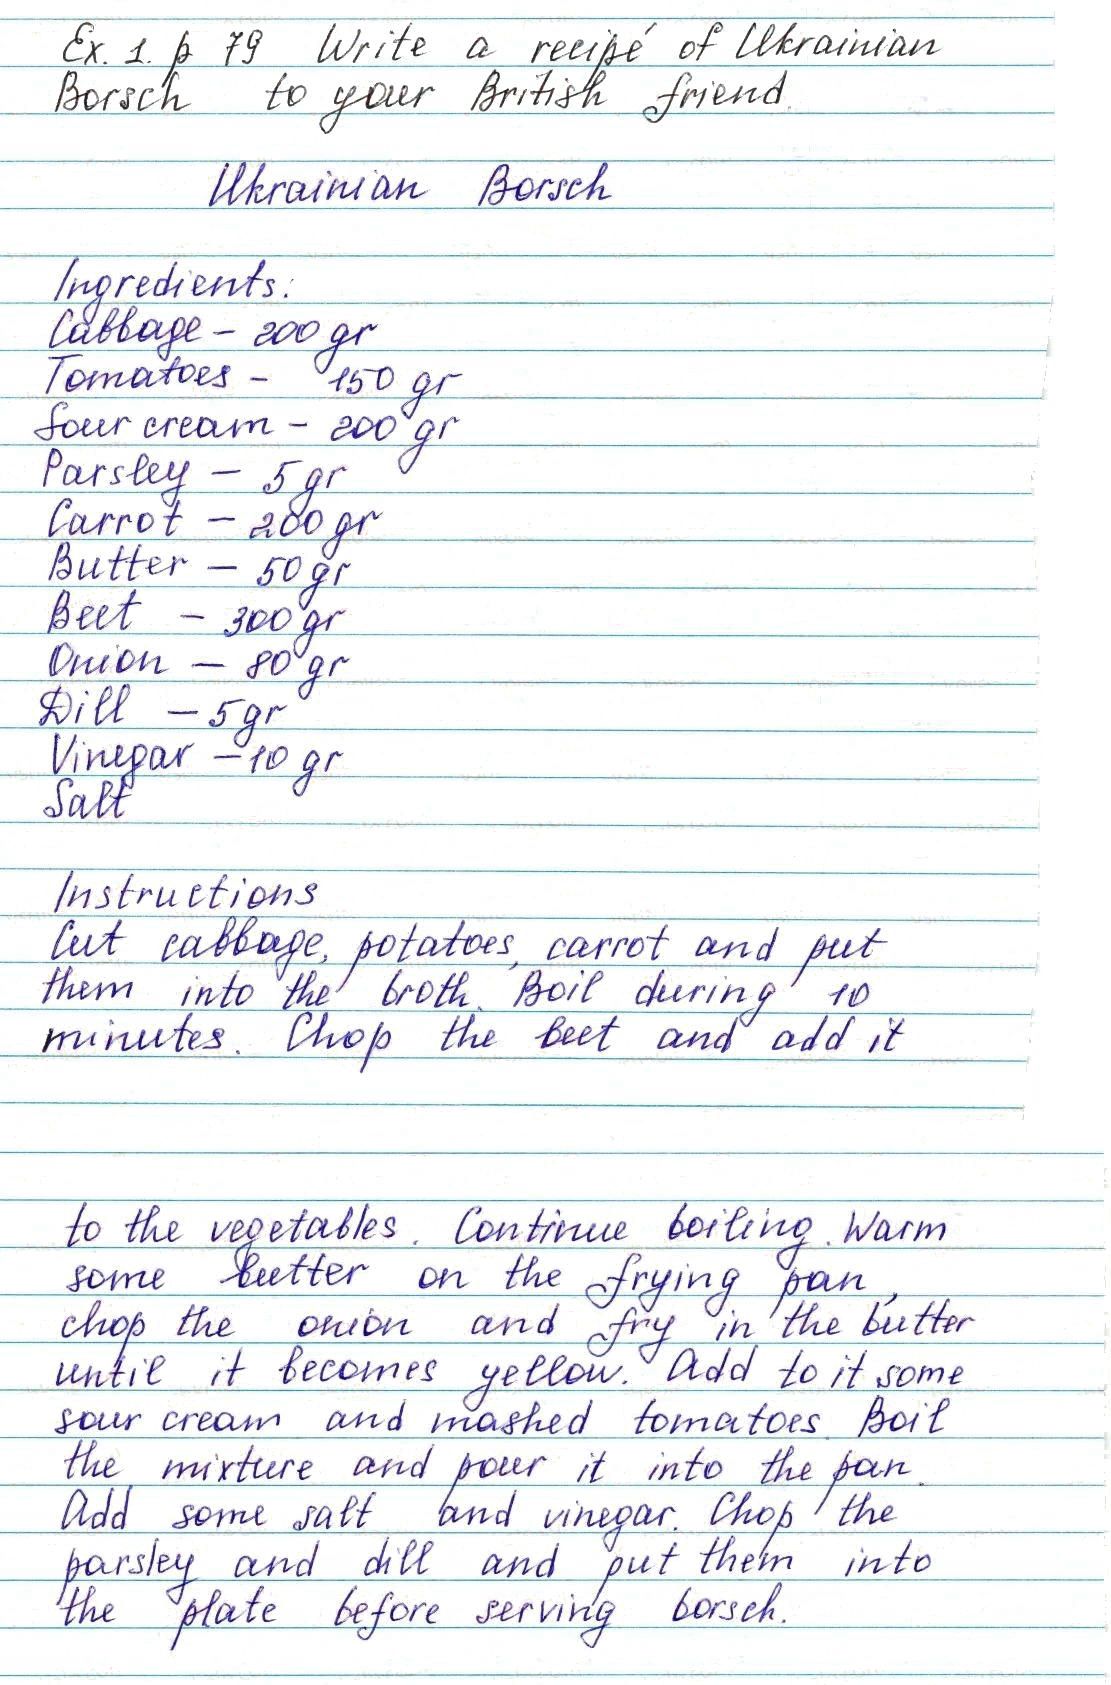 Ex. 1. p 79 Write a recipé of Ukrainian
Borsch to your British friend.
Ukrainian Borsch
Ingredients:
Cabbage – 200 gr
Tomatoes – 150 gr
Sour cream – 200 gr
Parsley – 5 gr
Carrot – 200 gr
Butter – 50 gr
Beet – 300 gr
Onion – 80 gr
Dill – 5 gr
Vinegar – 10 gr
Salt
Instructions
Cut cabbage, potatoes, carrot and put
them into the broth. Boil during 10
minutes. Chop the beet and add it
to the vegetables. Continue boiling. Warm
some butter on the frying pan,
chop the onion and fry in the butter
until it becomes yellow. Add to it some
sour cream and mashed tomatoes. Boil
the mixture and pour it into the pan.
Add some salt and vinegar. Chop the
parsley and dill and put them into
the plate before serving borsch.